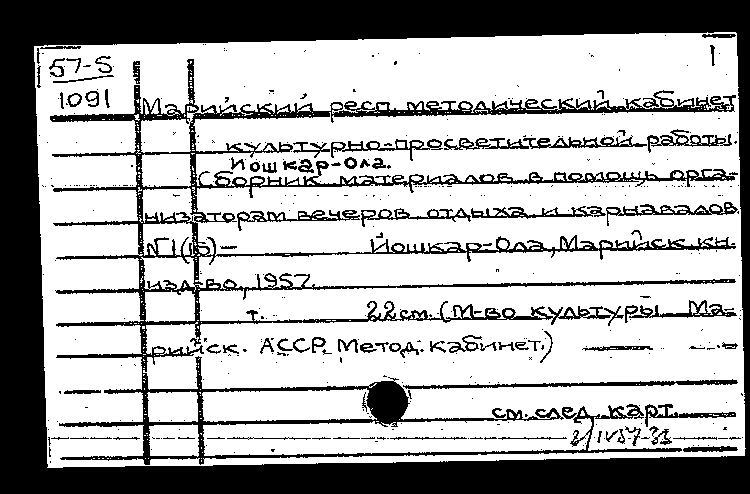 57-5 1
1091 Марийский респ. методический кабинет
культурно-просветительной работы.
Йошкар-Ола.
Сборник материалов в помощь орга-
низаторам вечеров отдыха и карнавалов
№1(15)— Йошкар-Ола, Марийск. кн.
изд-во, 1957.
т. 22 см. (М-во культуры Ма-
рийск. АССР. Метод. кабинет.)
см. след. карт.